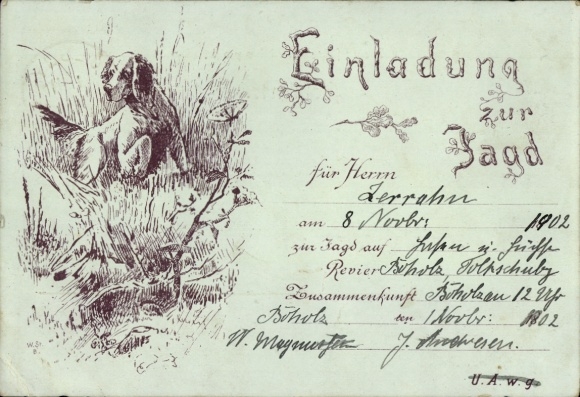 Einladung
zur
Jagd
für Herrn
Zerrahn
am 8 Novbr: 1902
zur Jagd auf Hasen u. Füchse
Revier Böholz
Zusammenkunft Böholz um 12 Uhr
Böholz den 1 Novbr: 1902
J. Andresen.
U. A. w. g.